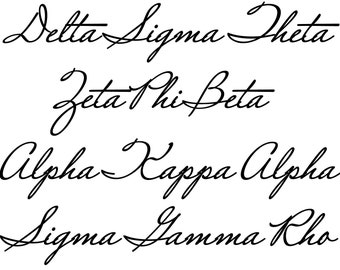 Delta Sigma Theta
Zeta Phi Beta
Alpha Kappa Alpha
Sigma Gamma Rho